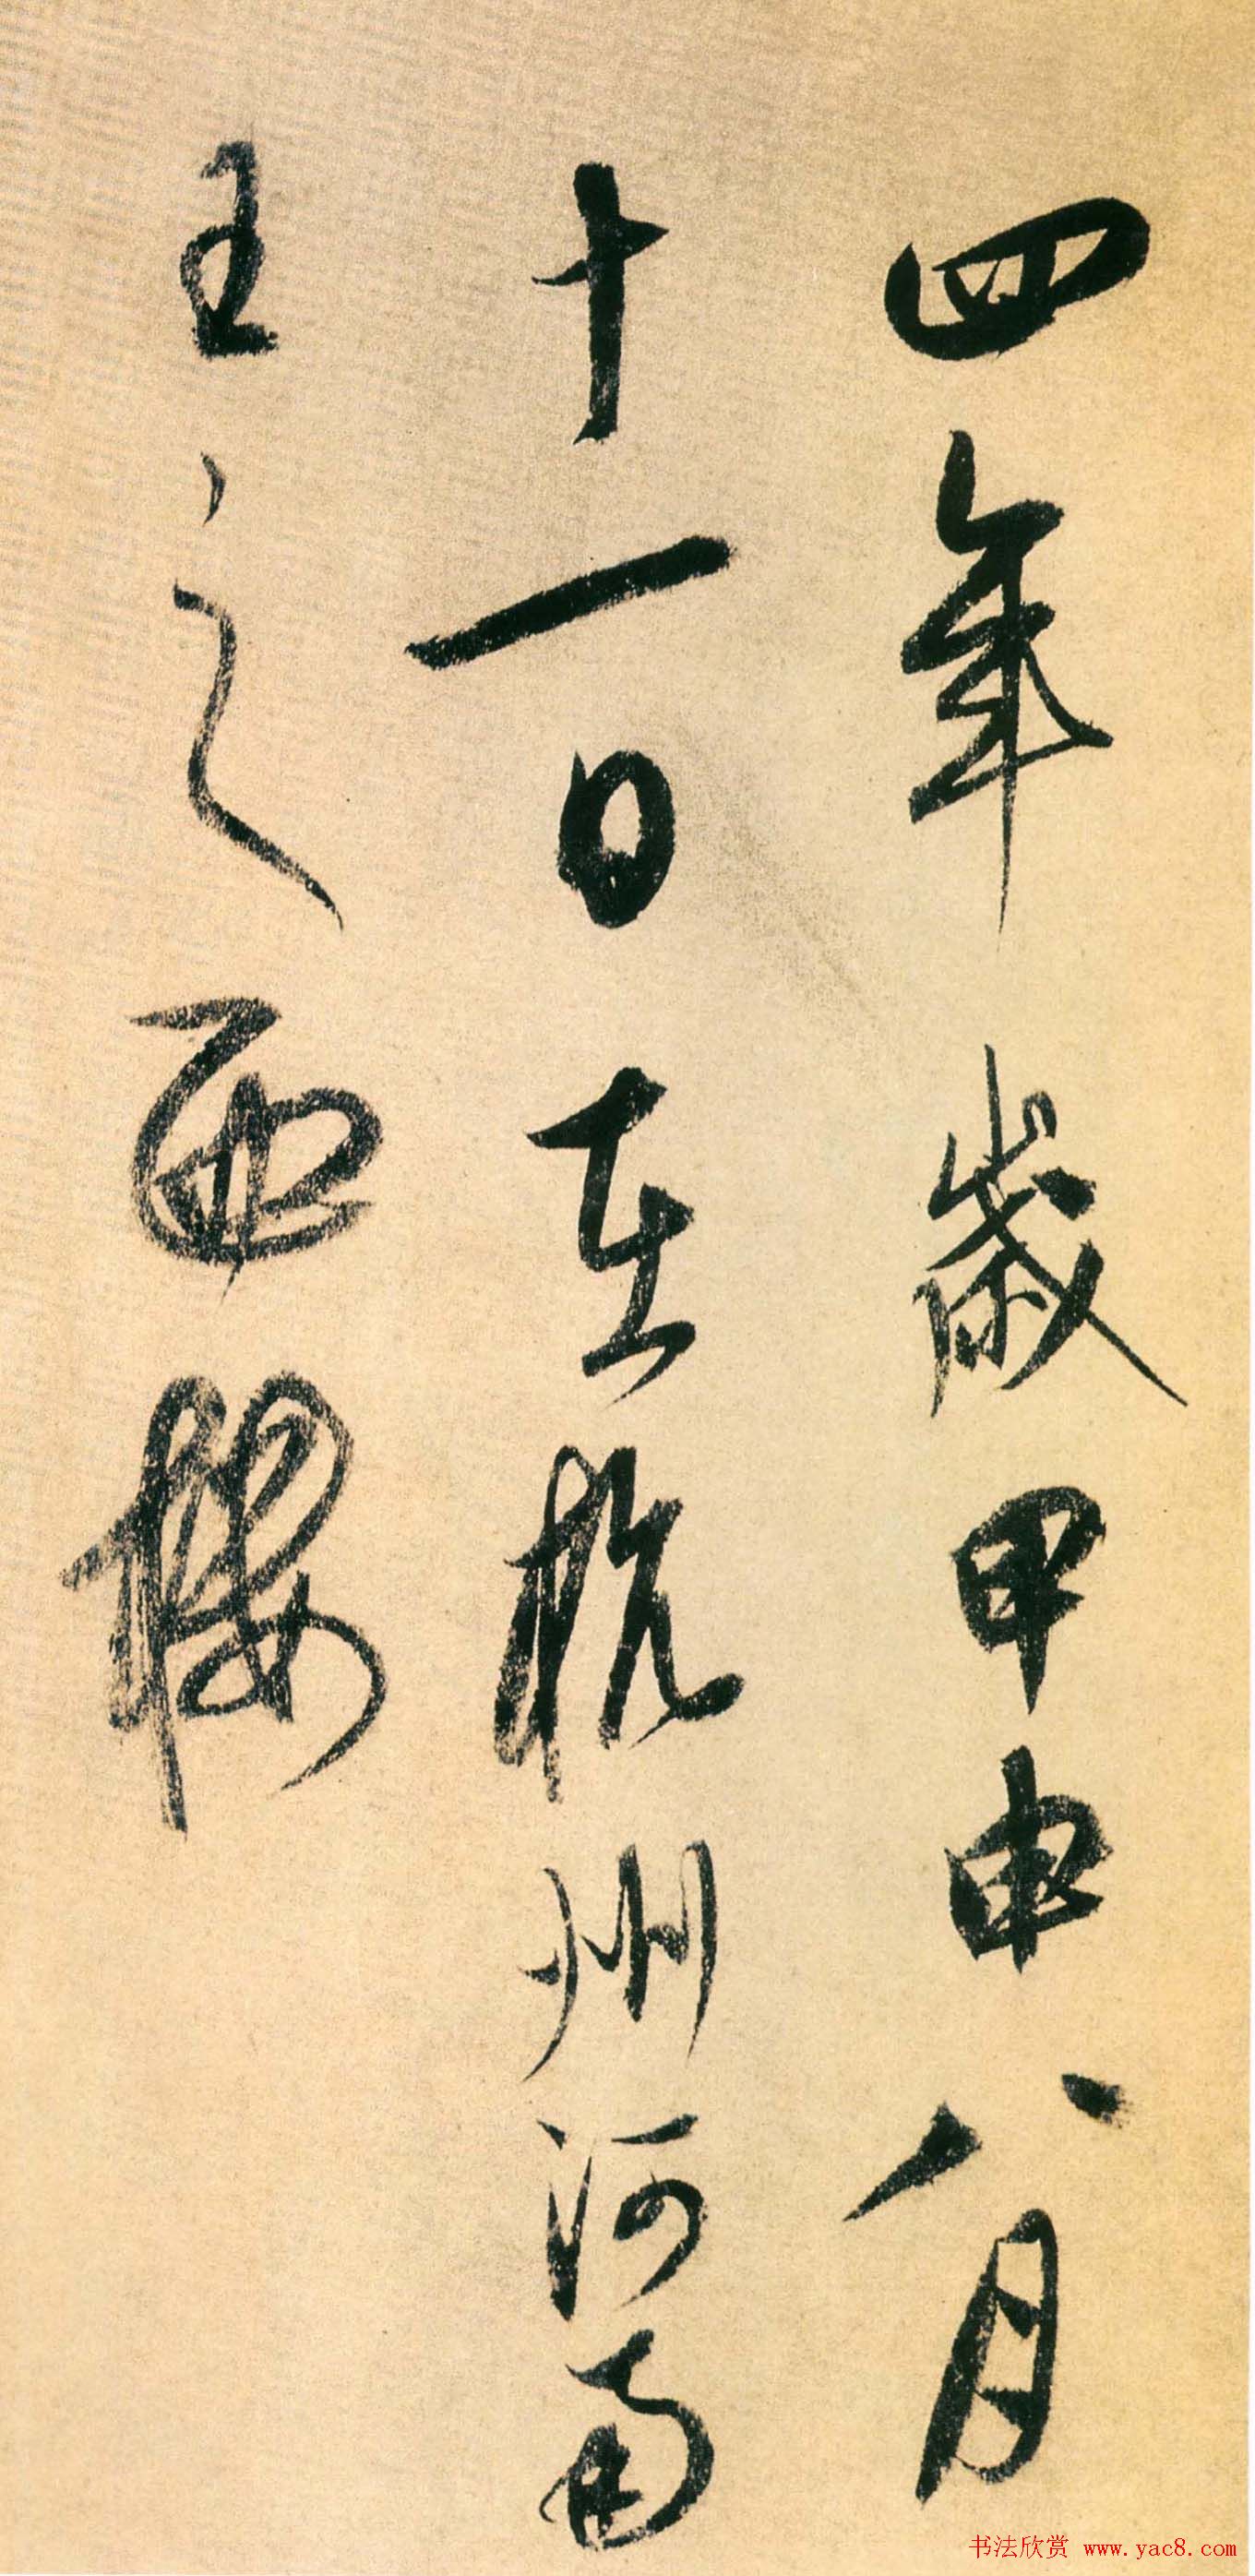 四年歲甲申八月
十一日在杭州河南
王之西樓
书法欣赏 www.yac8.com